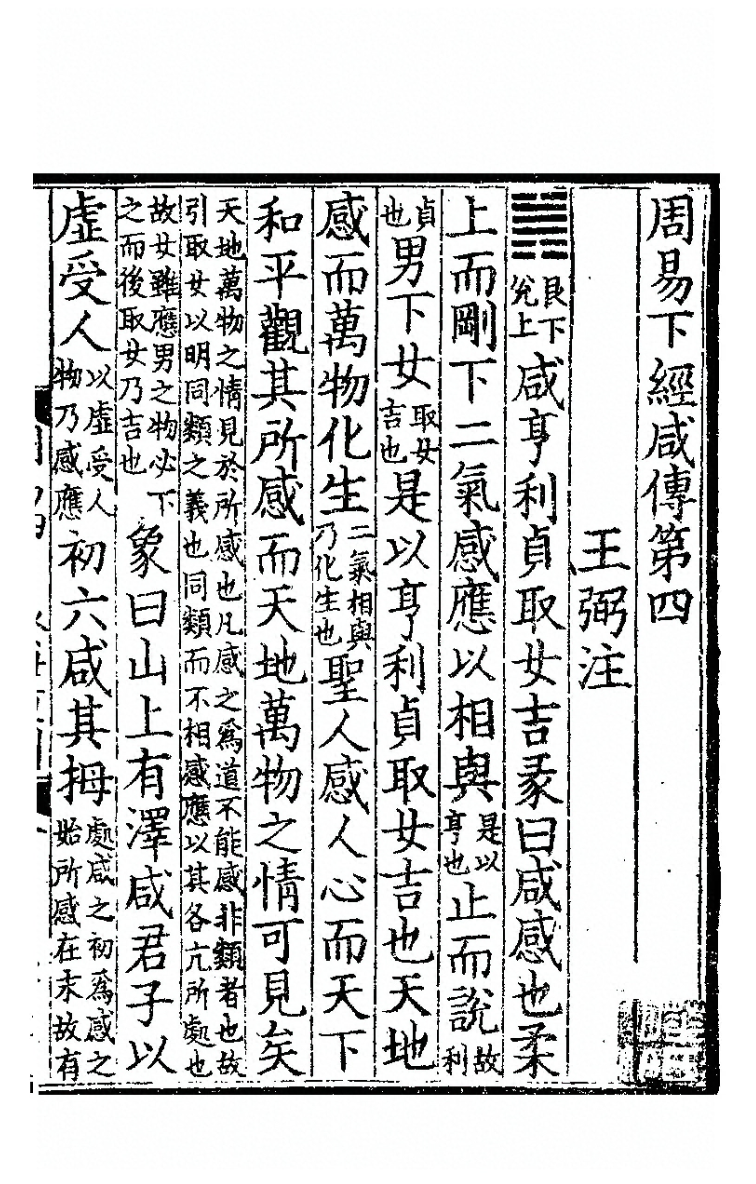 周易下經咸傳第四
王弼注
䷞艮下兊上咸亨利貞取女吉彖曰咸感也柔
上而剛下二氣感應以相與是以亨也止而說故利
貞也男下女取女吉也是以亨利貞取女吉也天地
感而萬物化生二氣相與乃化生也聖人感人心而天下
和平觀其所感而天地萬物之情可見矣
天地萬物之情見於所感也凡感之爲道不能感非類者也故
引取女以明同類之義也同類而不相感應以其各亢所處也
故女雖應男之物必下之而後取女乃吉也象曰山上有澤咸君子以
虛受人以虛受人物乃感應初六咸其拇處咸之初爲感之始所感在末故有